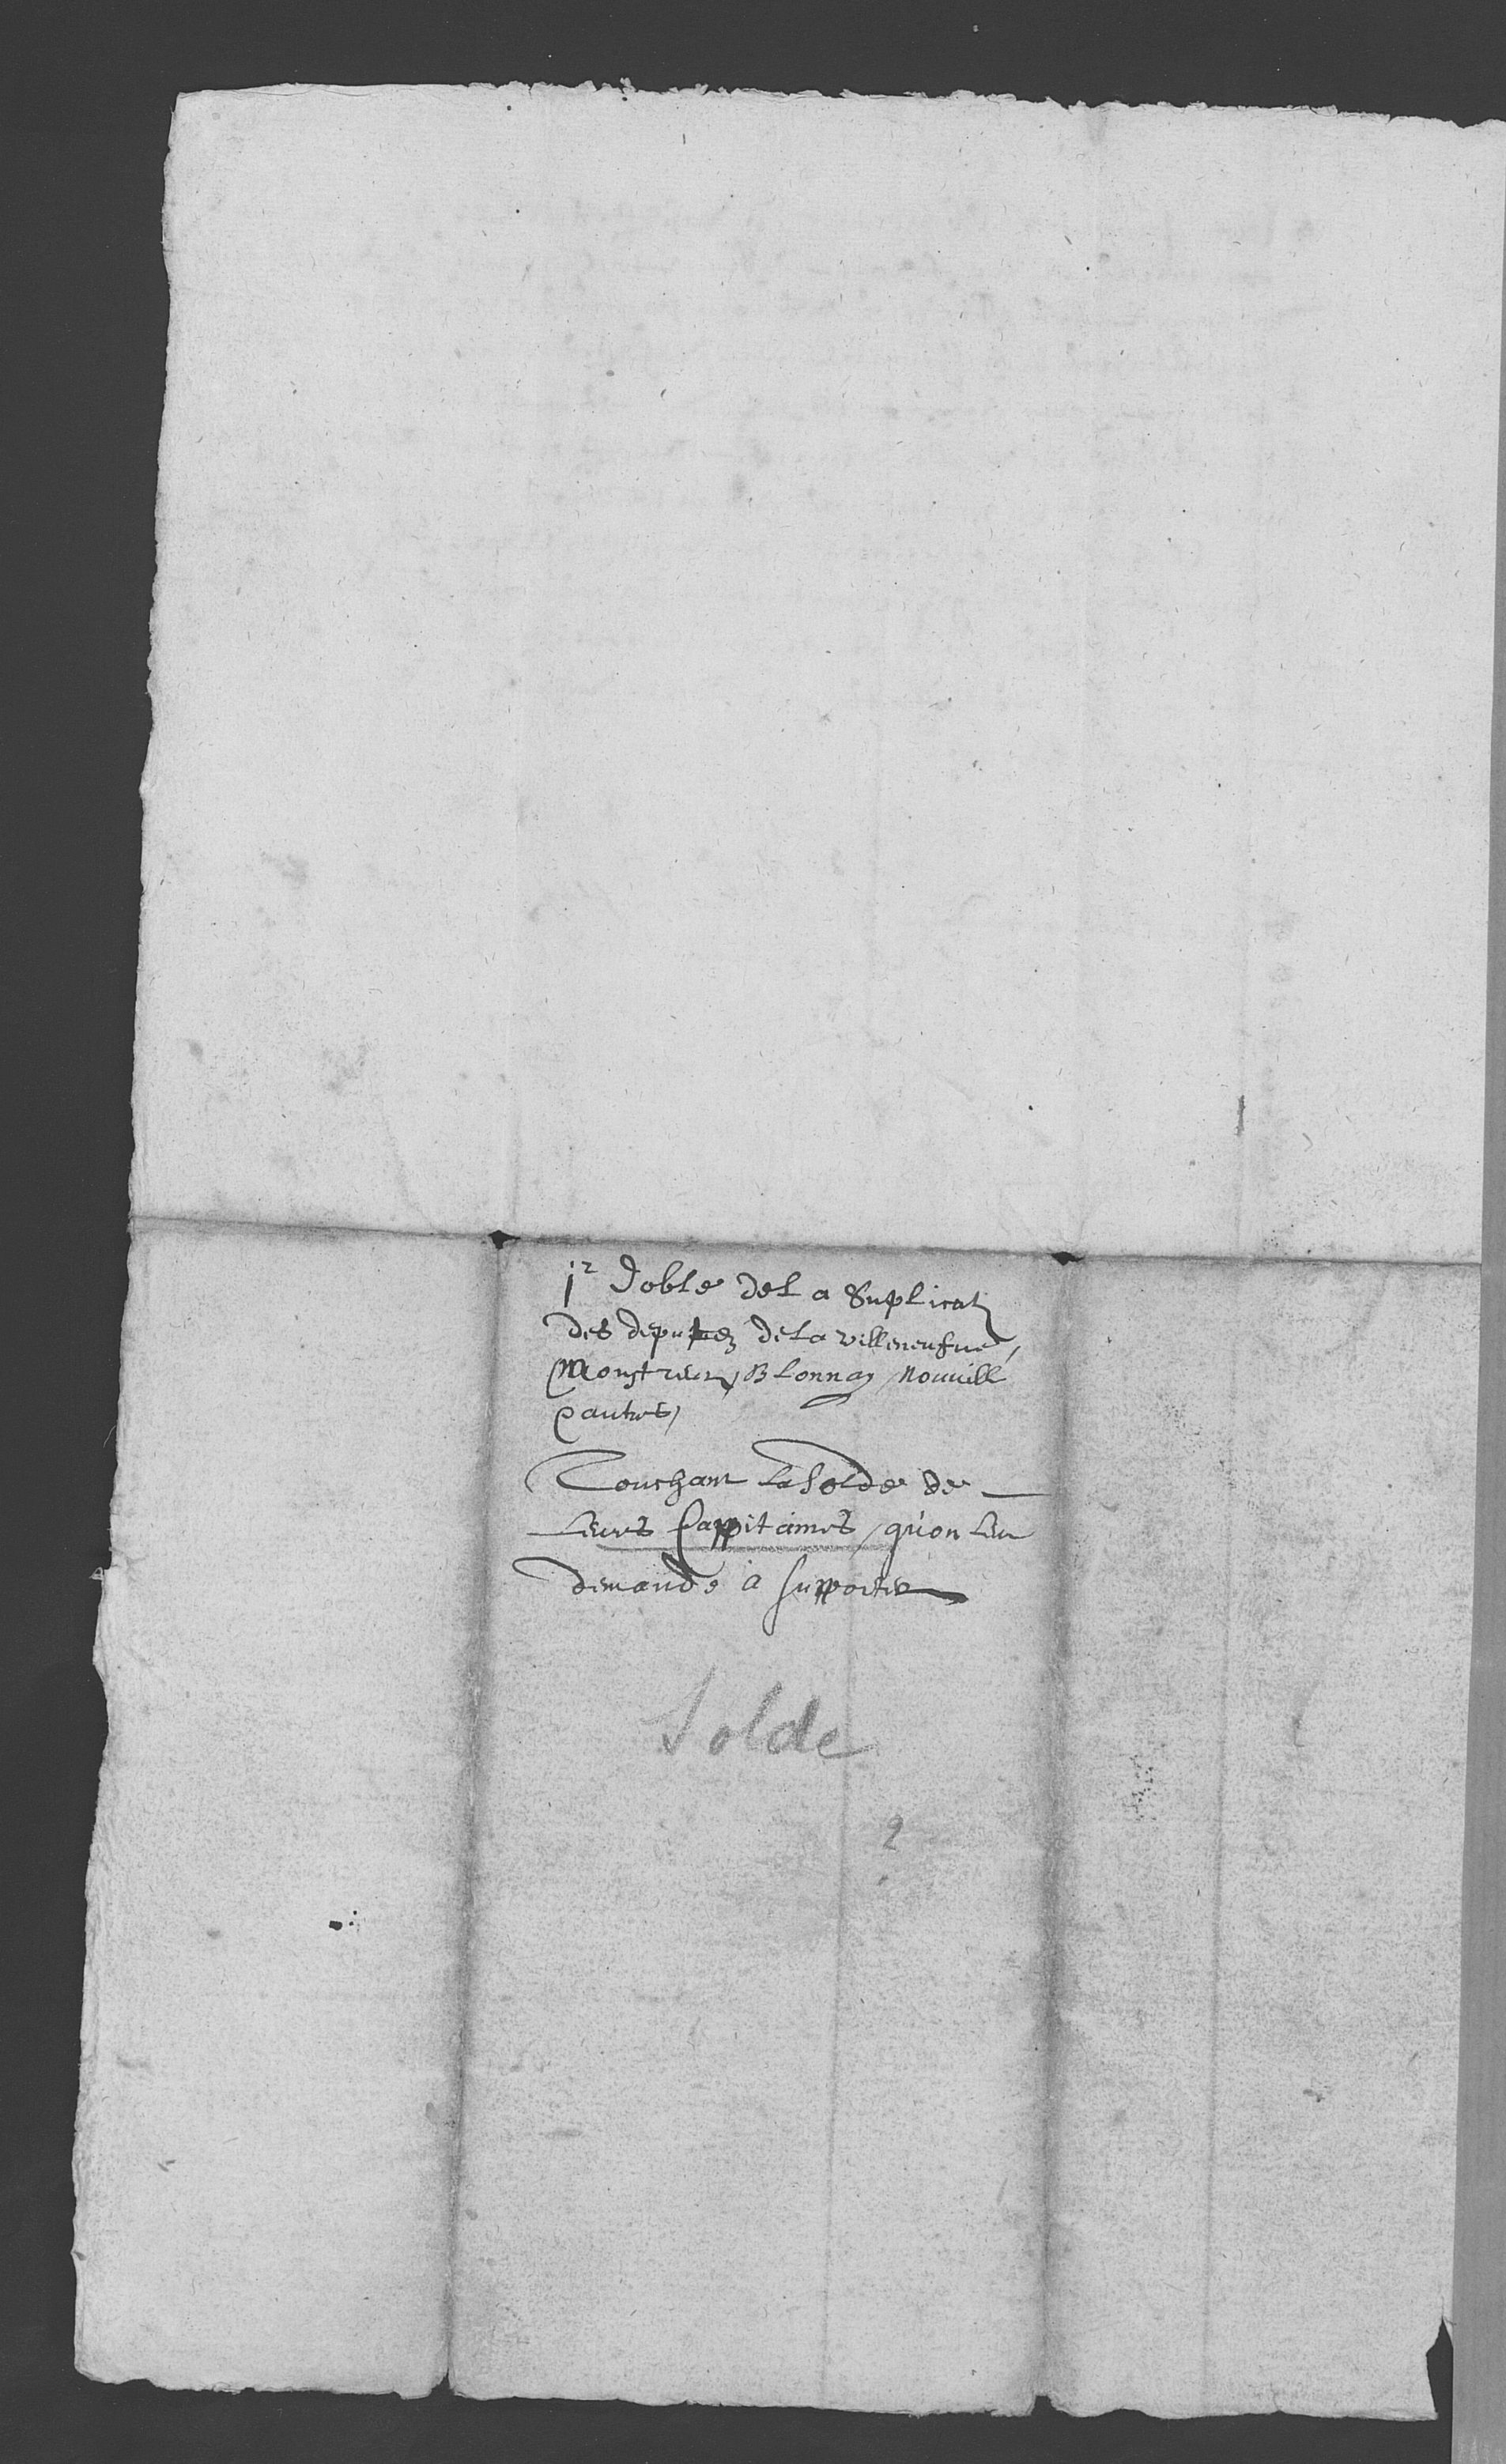 1r Doble de la Suplicat
des deputez de la villeneufve,
Monstreux, Blonnay, Nouville
& autres,
Touchant la solde de
leurs Cappitaines, qu'on leur
demande a supporter
Solde
2